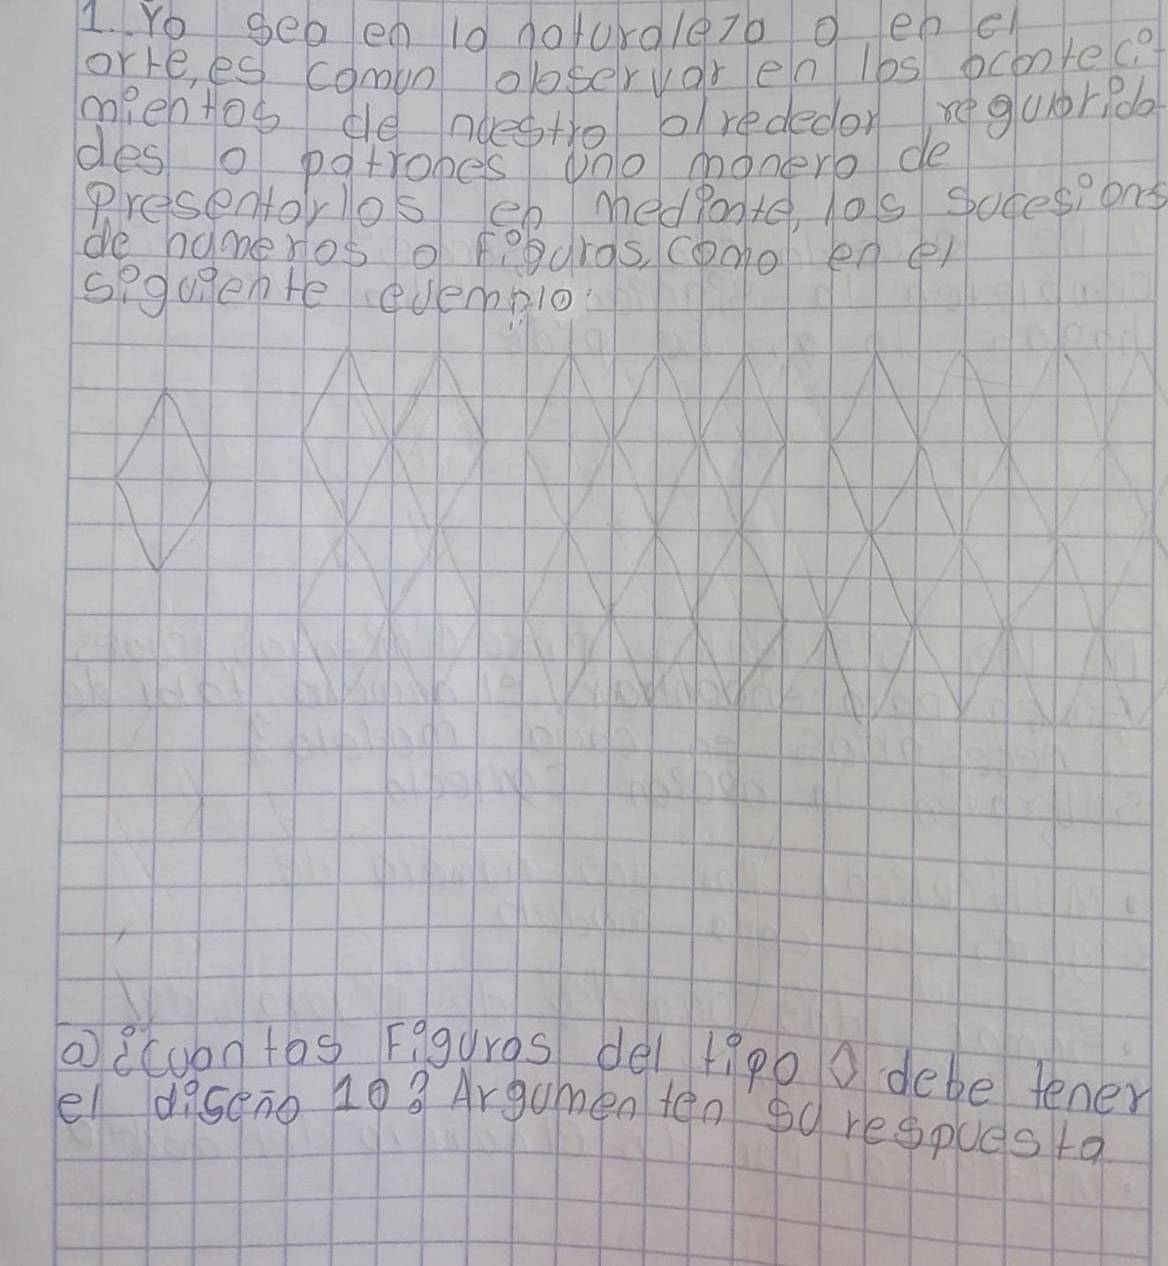 1. Ya sea en la naturaleza o en el
arte, es comun observar en los aconteci
mientos de nuestro alrededor regularida
des o patrones una manera de
presentarlos en mediante, las sucesions
de numeros o figuras, como en el
siguiente ejemplo:
a) ¿cuantas Figuras del tipo ◊ debe tener
el diseño 10? Argumenten su respuesta